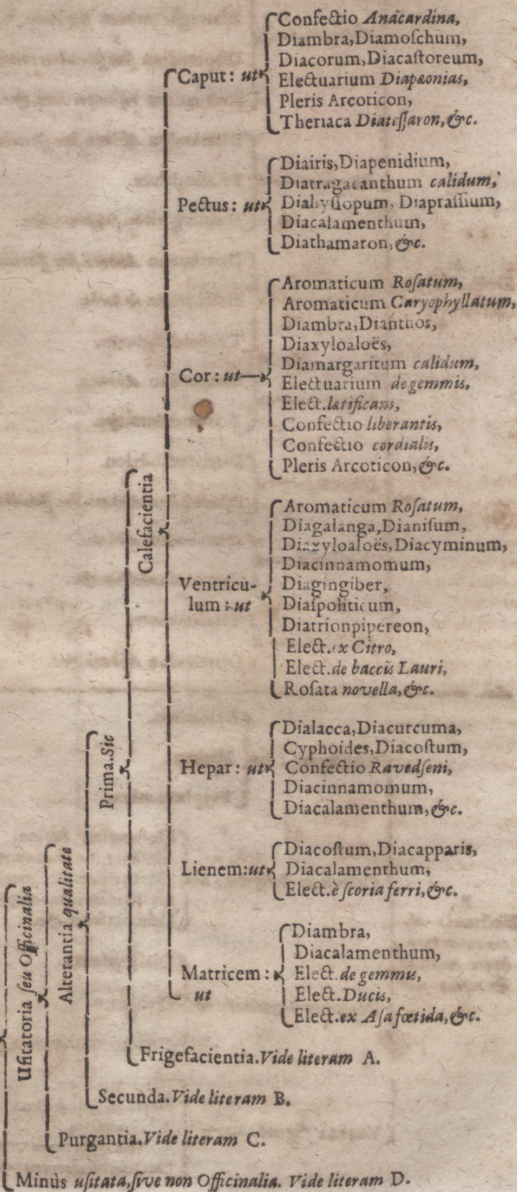 Caput: ut
Confectio Anacardina,
Diambra, Diamoſchum,
Diacorum, Diacaſtoreum,
Electuarium Diapæonias,
Pleris Arcoticon,
Theriaca Diateſſaron, &c.
Pectus: ut
Diairis, Diapenidium,
Diatragacanthum calidum,
Diahyſſopum, Diapraſſium,
Diacalamenthum,
Diathamaron, &c.
Cor: ut
Aromaticum Roſatum,
Aromaticum Caryophyllatum,
Diambra, Dianthos,
Diaxyloaloës,
Diamargaritum calidum,
Electuarium de gemmis,
Elect. lætificans,
Confectio liberantis,
Confectio cordialis,
Pleris Arcoticon, &c.
Ventricu-
lum: ut
Aromaticum Roſatum,
Diagalanga, Dianiſum,
Diaxyloaloës, Diacyminum,
Diacinnamomum,
Diagingiber,
Diaſpoliticum,
Diatrionpipereon,
Elect. ex Citro,
Elect. de baccis Lauri,
Roſata novella, &c.
Hepar: ut
Dialacca, Diacurcuma,
Cyphoides, Diacoſtum,
Confectio Ravedſeni,
Diacinnamomum,
Diacalamenthum, &c.
Lienem: ut
Diacoſtum, Diacapparis,
Diacalamenthum,
Elect. è ſcoria ferri, &c.
Matricem:
ut
Diambra,
Diacalamenthum,
Elect. de gemmis,
Elect. Ducis,
Elect. ex Aſa fœtida, &c.
Calefacientia
Prima. Sic
Alterantia qualitate
Uſitatoria ſeu Officinalia
Frigefacientia. Vide literam A.
Secunda. Vide literam B.
Purgantia. Vide literam C.
Minùs uſitata, ſive non Officinalia. Vide literam D.